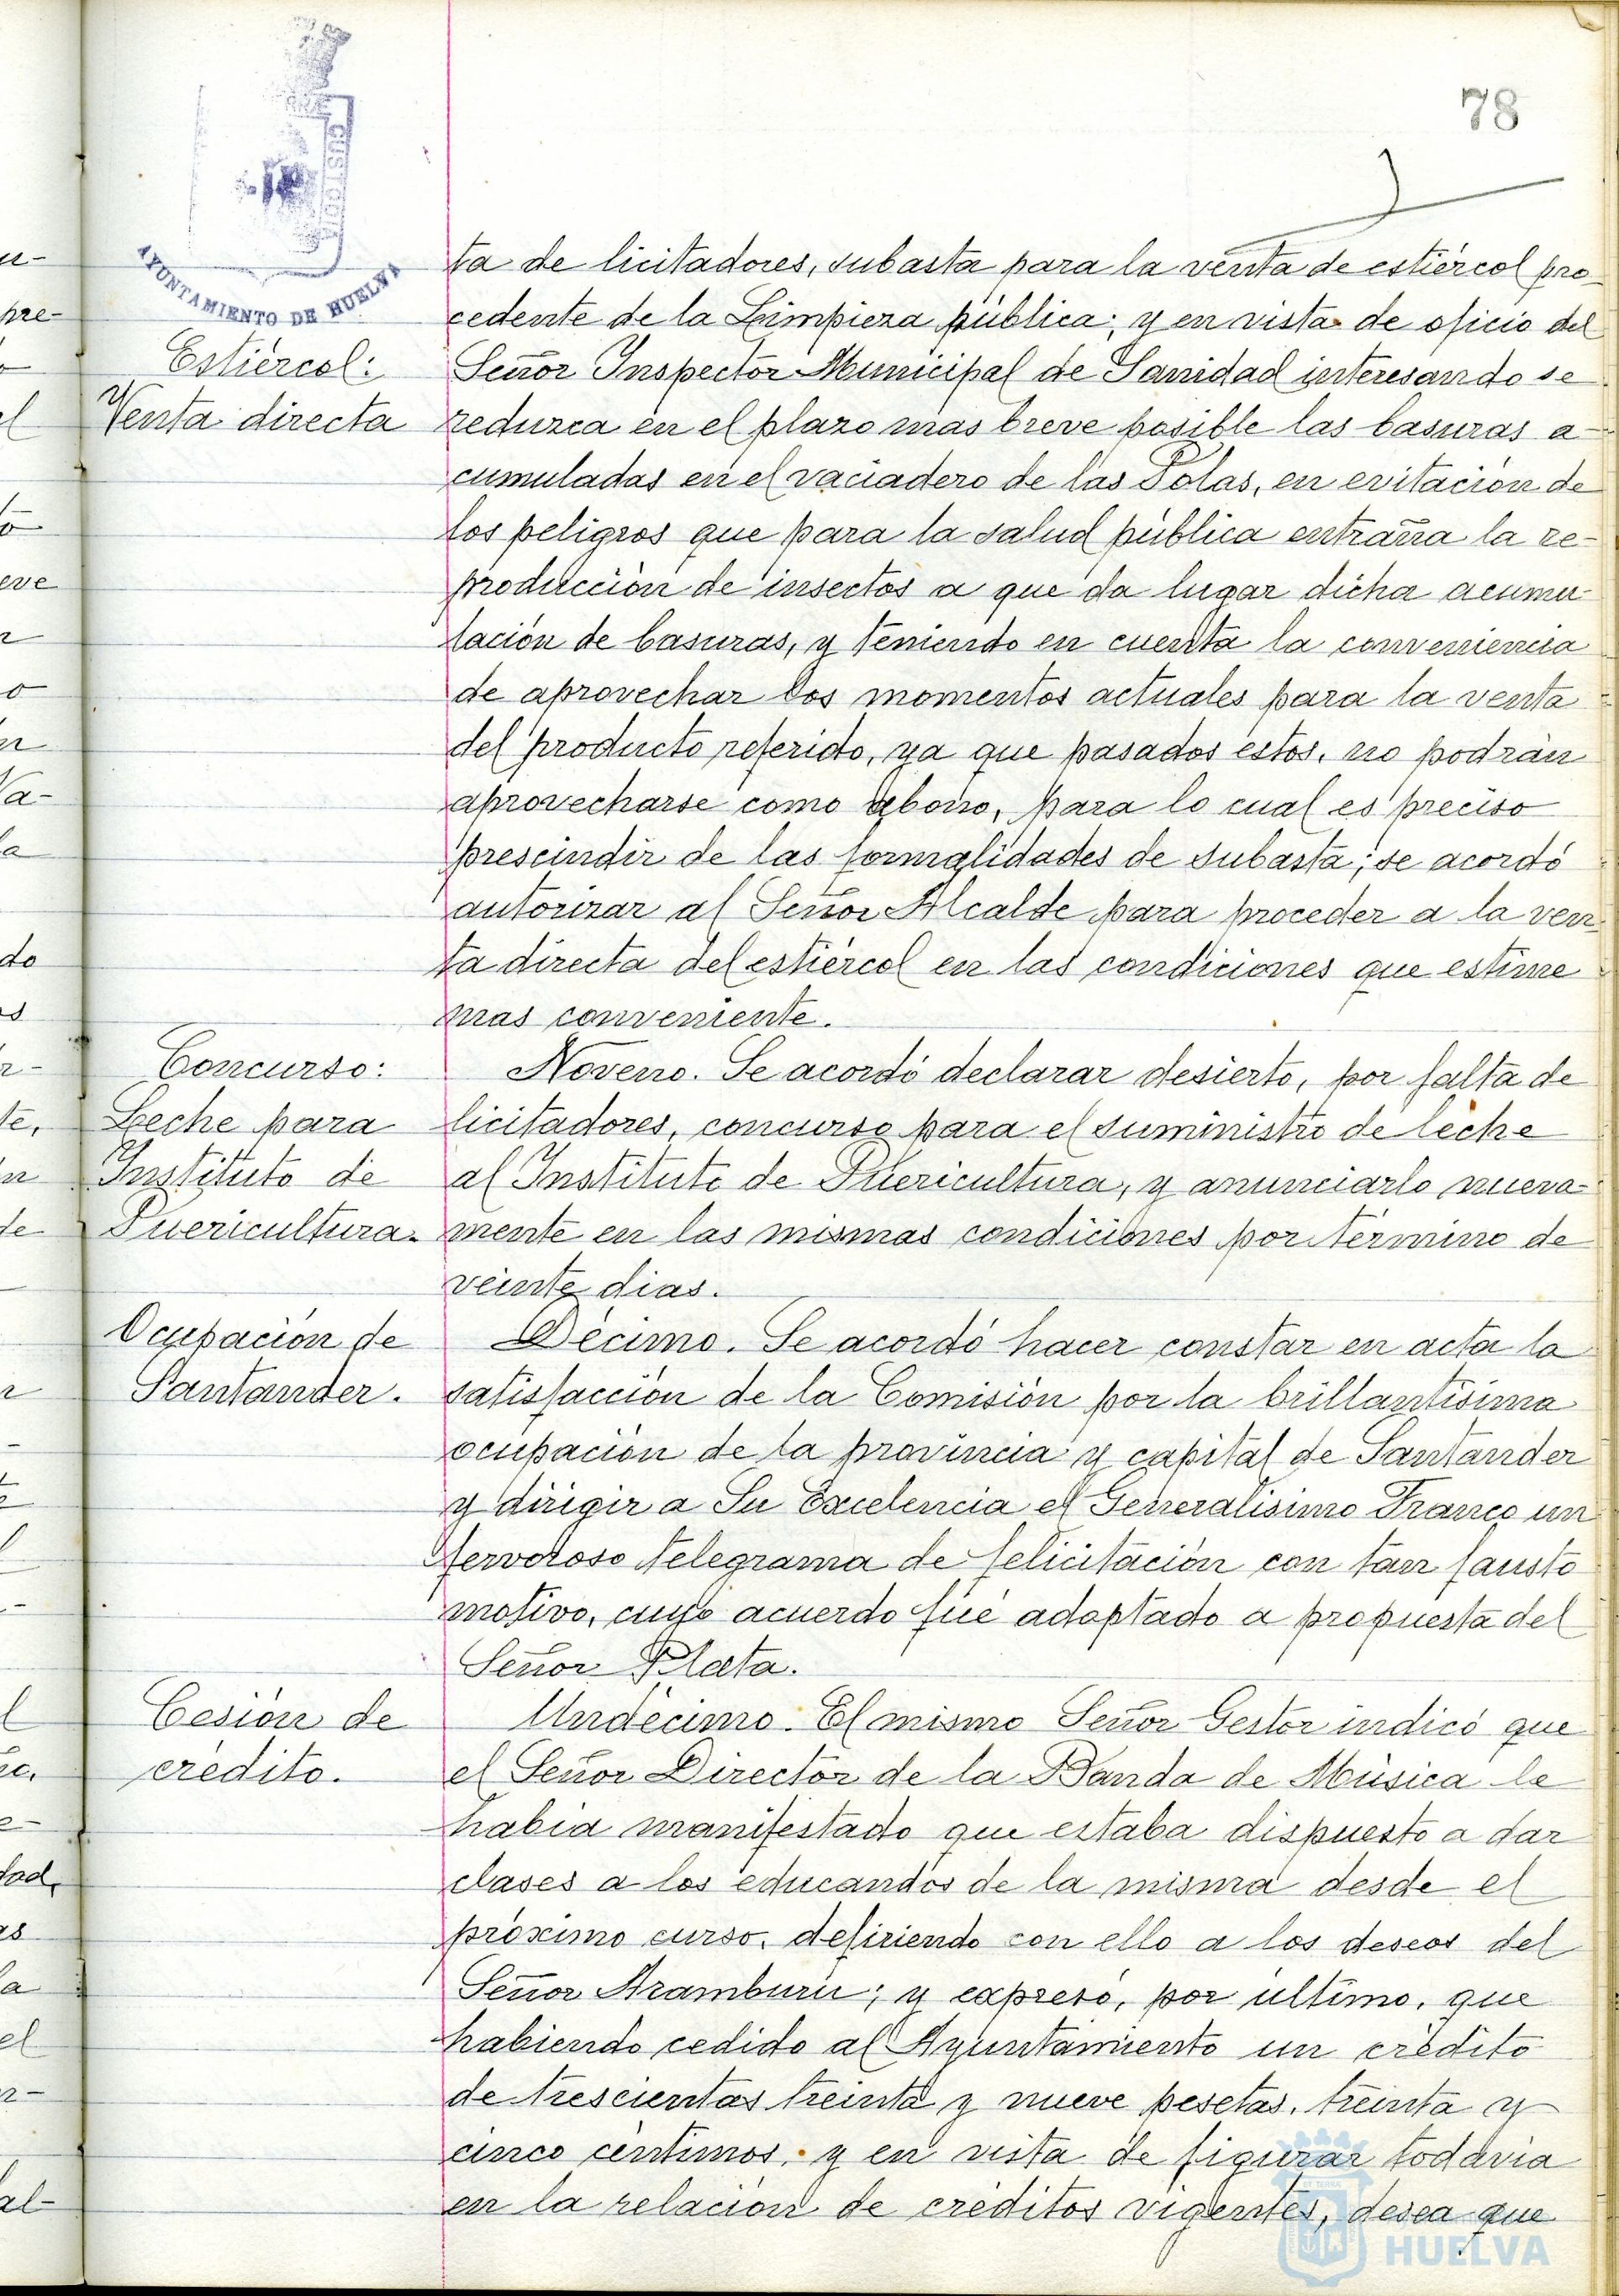 78
AYUNTAMIENTO DE HUELVA
Estiércol:
Venta directa
ta de licitadores, subasta para la venta de estiércol pro-
cedente de la Limpieza pública; y en vista de oficio del
Señor Inspector Municipal de Sanidad interesando se
reduzca en el plazo mas breve posible las basuras a-
cumuladas en el vaciadero de las Polas, en evitación de
los peligros que para la salud pública entraña la re-
producción de insectos a que da lugar dicha acumu-
lación de basuras, y teniendo en cuenta la conveniencia
de aprovechar los momentos actuales para la venta
del producto referido, ya que pasados éstos, no podrán
aprovecharse como abono, para lo cual es preciso
prescindir de las formalidades de subasta; se acordó
autorizar al Señor Alcalde para proceder a la ven-
ta directa del estiércol en las condiciones que estime
mas conveniente.
Concurso:
Leche para
Instituto de
Puericultura.
Noveno. Se acordó declarar desierto, por falta de
licitadores, concurso para el suministro de leche
al Instituto de Puericultura, y anunciarlo nueva-
mente en las mismas condiciones por término de
veinte dias.
Ocupación de
Santander.
Décimo. Se acordó hacer constar en acta la
satisfacción de la Comisión por la brillantísima
ocupación de la provincia y capital de Santander
y dirigir a Su Excelencia el Generalísimo Franco un
fervoroso telegrama de felicitación con tan fausto
motivo, cuyo acuerdo fué adoptado a propuesta del
Señor Plata.
Cesión de
crédito.
Undécimo. El mismo Señor Gestor indicó que
el Señor Director de la Banda de Música le
había manifestado que estaba dispuesto a dar
clases a los educandos de la misma desde el
próximo curso, defiriendo con ello a los deseos del
Señor Aramburu; y expresó, por último, que
habiendo cedido al Ayuntamiento un crédito
de trescientas treinta y nueve pesetas, treinta y
cinco céntimos, y en vista de figurar todavía
en la relación de créditos vigentes, desea que
HUELVA